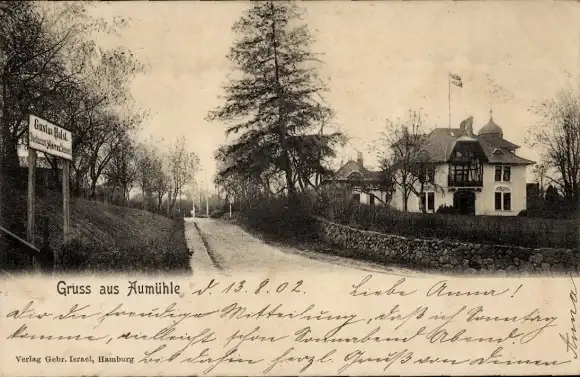 Gustav
Gruss aus Aumühle
d. 13.8.02. Liebe Anna!
die freudige Mitteilung, daß ich Sonntag
komme, vielleicht schon Sonnabend Abend.
Bis dahin herzl. Gruß von Deinem
Verlag Gebr. Israel, Hamburg